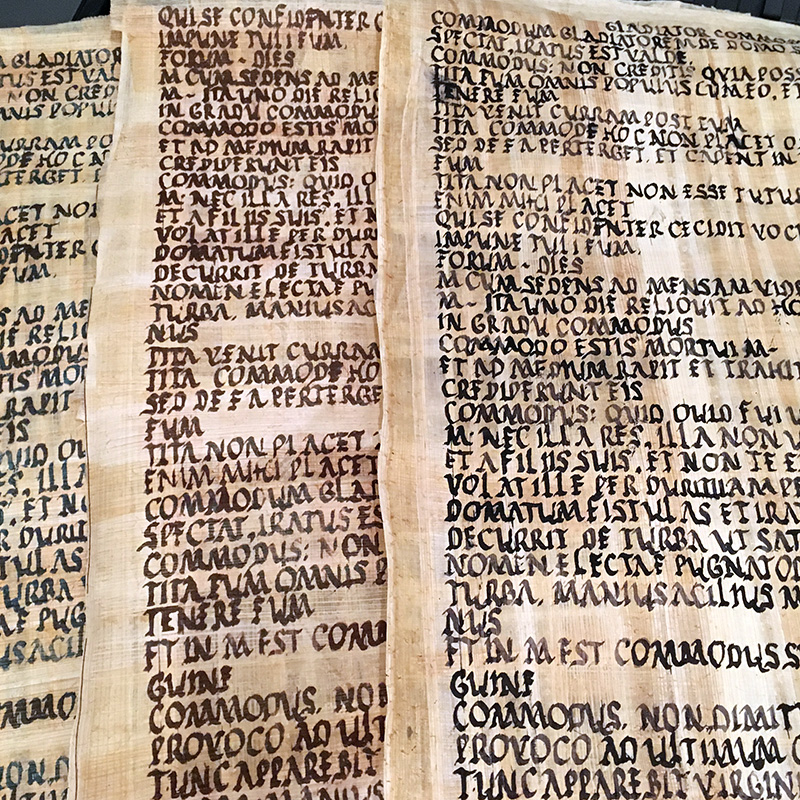 GLADIATOR
EST VAL
NON CRED
OMNIS POPULU
CURRAM PO
HOC NA
PERTERGET
PLACET NON
PLACET
CONFIDENTER
EUM
SEDENS AD ME
DIE RELIC
COMMODUS
ESTIS MO
RAPIT
EIS
QUID QU
RES, ILL
SUIS, ET N
PER DURI
FISTULAS
TURBA
PUG
ACIL
COMMO
NON D
QUI SE CONFIDENTER C
IMPUNE TULI EUM
FORUM - DIES
M CUM SEDENS AD ME
M - ITA UNO DIE RELIC
IN GRADU COMMODU
COMMODO ESTIS MO
ET AD MEDIUM RAPIT
CREDIDERUNT EIS
COMMODUS: QUID Q
M: NEC ILLA RES, ILL
ET A FILIIS SUIS, ET N
VOLAT ILLE PER DURI
DOMATUM FISTULA
DECURRIT DE TURBA
NOMEN ELECTAE PU
TURBA, MANIUS AC
NUS
TITA VENIT CURRAM
TITA COMMODE HO
SED DE EA PERTERGE
EUM
TITA NON PLACET
ENIM MIHI PLACET
COMMODUM GLAD
SPECTAT, IRATUS ES
COMMODUS: NON
TITA EUM OMNIS P
TENERE EUM
ET IN M EST COMM
GUINE
COMMODUS. NON
PROVOCO AD ULT
TUNC APPAREBIT
COMMODUM GLADIATOR COMMOD
SPECTAT, IRATUS EST VALDE. GLADIATOREM DE DOMO S
COMMODUS: NON CREDITIS QVIA POSS
TITA EUM OMNIS POPULUS CUM EO, ET
TENERE EUM
TITA VENIT CURRAM POST EUM
TITA COMMODE HOC NON PLACET
SED DE EA PERTERGET, ET CAPENT IN
EUM
TITA NON PLACET NON ESSE TUTU
ENIM MIHI PLACET
QUI SE CONFIDENTER CECIDIT VOCU
IMPUNE TULI EUM,
FORUM - DIES
M CUM SEDENS AD MENSAM VIDE
M - ITA UNO DIE RELIQUIT AD HO
IN GRADU COMMODUS
COMMODO ESTIS MORTUI M-
ET AD MEDIUM RAPIT ET TRAHIT
CREDIDERUNT EIS
COMMODUS: QUID QUID FUI V
M: NEC ILLA RES, ILLA NON V
ET A FILIIS SUIS, ET NON TE E
VOLAT ILLE PER DURITIAM PE
DOMATUM FISTULAS ET IRA
DECURRIT DE TURBA UT SAT
NOMEN ELECTAE PUGNATO
TURBA, MANIUS ACILIUS N
NUS
ET IN M EST COMMODUS S
GUINE
COMMODUS. NON DIMIT
PROVOCO AD ULTIMUM C
TUNC APPAREBIT VIRGIN